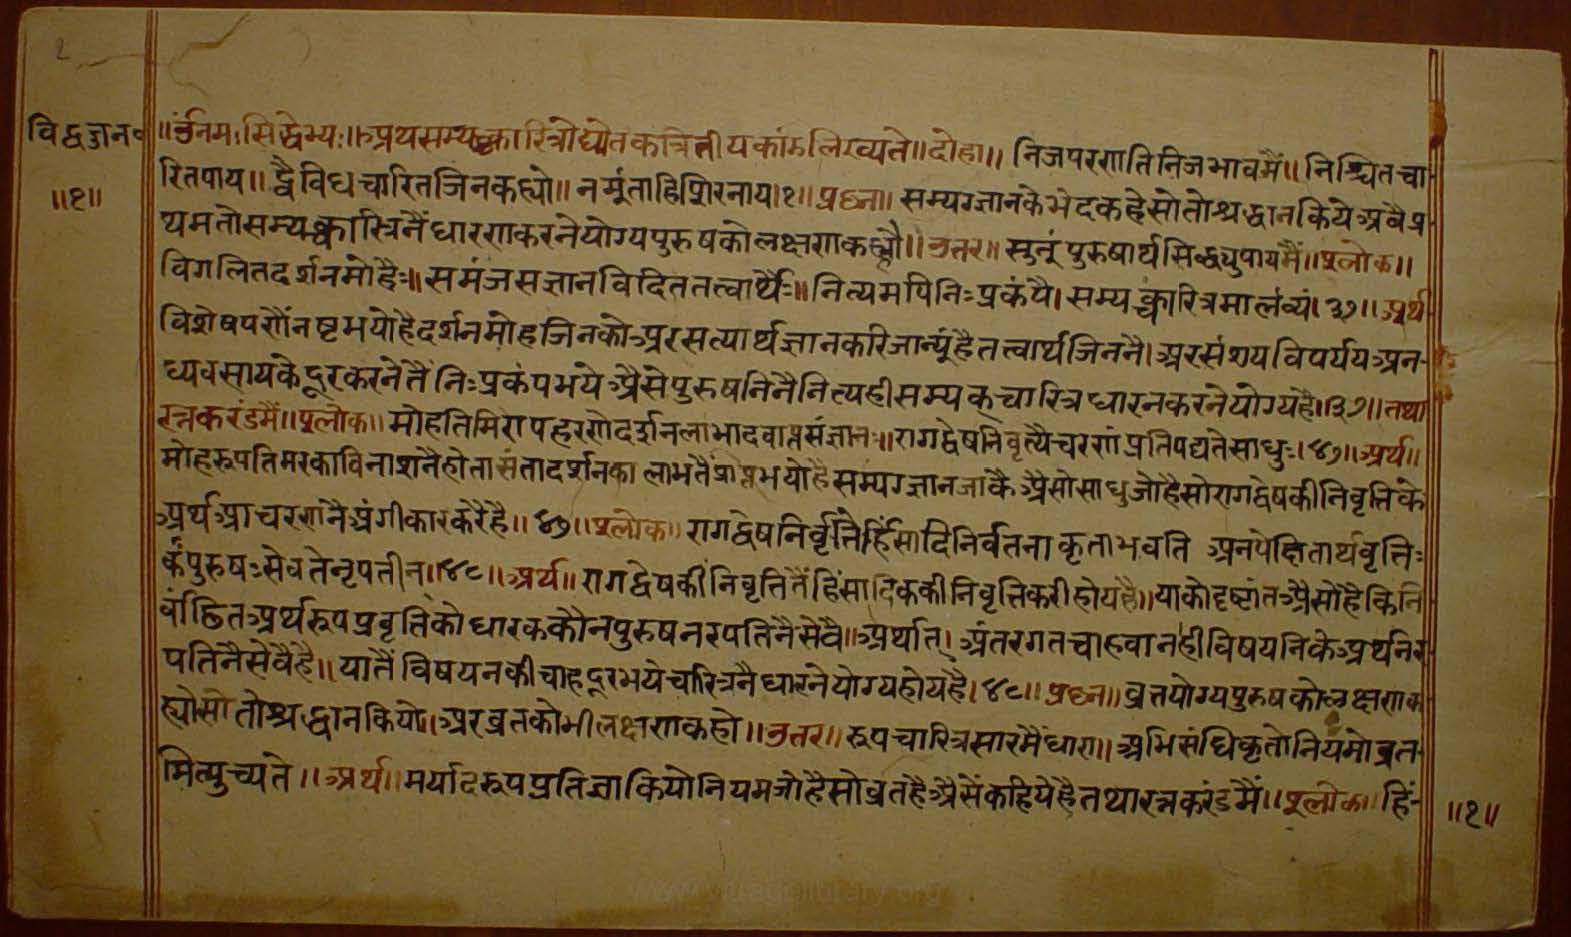 विद्वज्जन॰
॥१॥
॥ॐनमःसिद्धेभ्यः॥अथसम्यक्चारित्रोद्योतकत्रितीयकांडलिख्यते॥दोहा॥ निजपरणतिनिजभावमैं॥निश्चितचा-
रितपाय॥द्वैविधचारितजिनकह्यो॥नमूंताहिशिरनाय।१॥प्रश्न॥सम्यग्ज्ञानकेभेदकहेसोतोश्रद्धानकियेअबैप्र
थमतोसम्यक्चारित्रनैंधारणाकरनेयोग्यपुरुषकोलक्षणकह्यौ॥उत्तर॥सुनूंपुरुषार्थसिद्ध्युपायमैं॥श्लोक॥
विगलितदर्शनमोहैः॥समंजसज्ञानविदिततत्वार्थैः॥नित्यमपिनिःप्रकंपै।सम्यक्चारित्रमालंव्यं।३७॥अर्थ
विशेषपणैंनष्टमयोहैदर्शनमोहजिनकोअरसत्यार्थज्ञानकरिजान्यूंहैतत्वार्थजिननै।अरसंशयविपर्ययअन-
ध्यवसायकेदूरकरनेतैंनिःप्रकंपभयेअैसेपुरुषनिनैनित्यहीसम्यकचारित्रधारनकरनेयोग्यहै।३७॥तथा
रत्नकरंडमैं॥श्लोक॥मोहतिमिरापहरणेदर्शनलाभादवाप्तसंज्ञानः॥रागद्वेषनिवृत्यैचरणंप्रतिपद्यतेसाधुः।४७॥अर्थ॥
मोहरूपतिमरकाविनाशनैहोतासंतादर्शनकालाभतैंप्राप्तभयोहैसम्यग्ज्ञानजाकैअैसोसाधुजोहैसोरागद्वेषकीनिवृत्तिके
अर्थआचरणनैअंगीकारकरैहै॥४७॥श्लोक॥रागद्वेषनिर्वृत्तिेर्हिंसादिनिर्वतनाकृताभवति अनपेक्षितार्थवृत्तिः
कंपुरुषःसेवतेनृपतीन्॥४८॥अर्थ॥रागद्वेषकीनिवृत्तितैंहिंसादिककीनिवृत्तिकरीहोयहै॥याकोदृष्टांतअैसोहैकिनि-
वांछितअर्थरूपप्रवृत्तिकोधारककौनपुरुषनरपतिनैसेवै॥अर्थात्।अंतरगतचाहवानहीविषयनिकेअर्थनिर-
पतिनैसेवैहै॥यातैंविषयनकीचाहदूरभयेचारित्रनैधारनेयोग्यहोयहै।४८॥प्रश्न॥व्रतयोग्यपुरुषकोलक्षणक
ह्योसोतोश्रद्धानकियो।अरव्रतकोभीलक्षणकहो॥उत्तर॥रूपचारित्रसारमैंधारा॥अभिसंधिकृतोनियमोव्रत-
मित्युच्यते॥अर्थ॥मर्यादरूपप्रतिज्ञाकियोनियमजोहैसोव्रतहैअैसेंकहियेहैतथारत्नकरंडमैं॥श्लोक॥हिं-
॥१॥